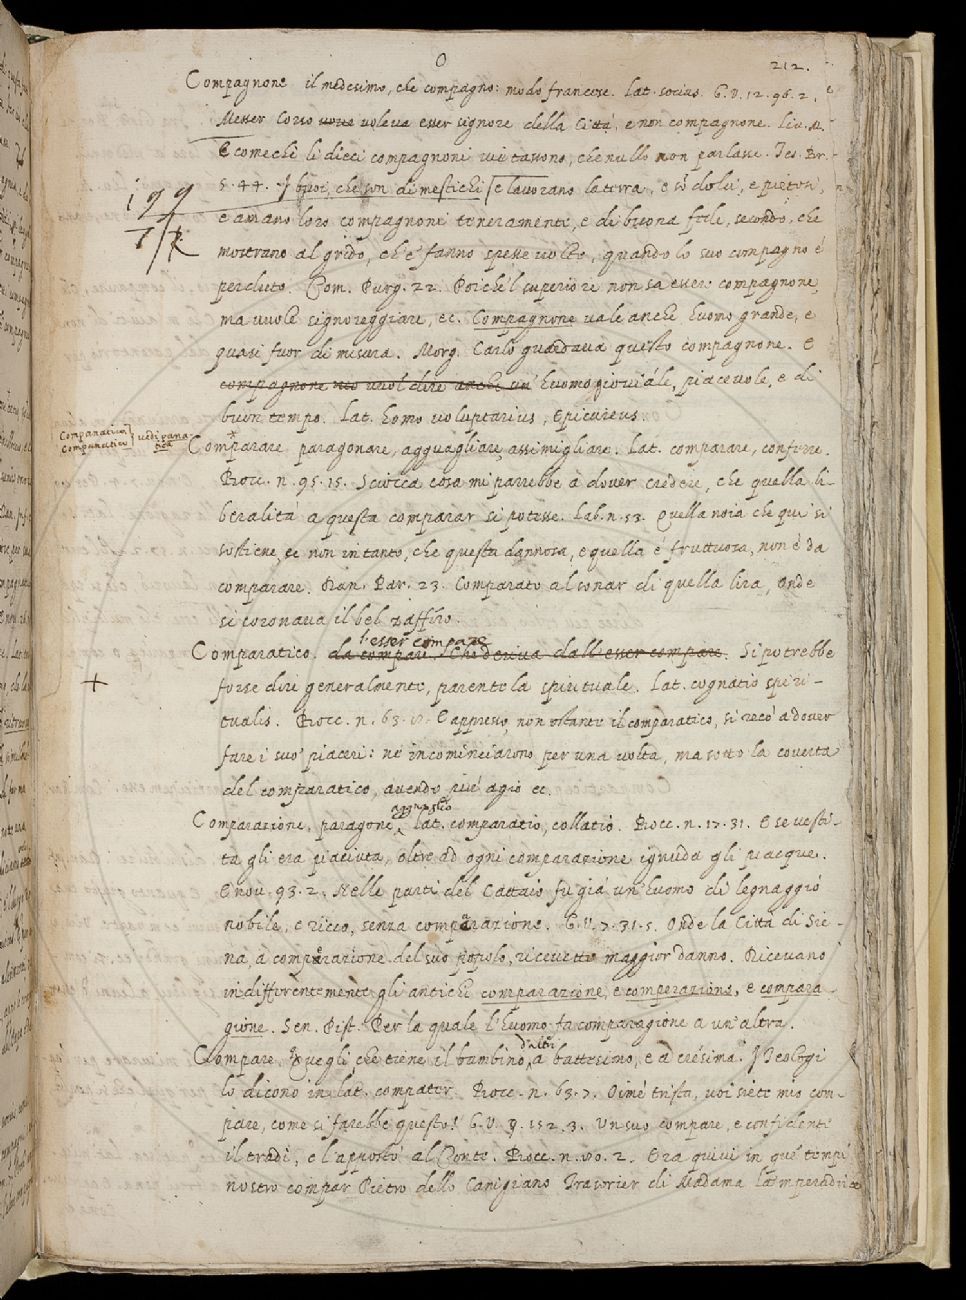 O
212.
Compagnone il medesimo, che compagno: modo francese. Lat. socius. G.V. 12. 96. 2.
Messer Corso voleva esser signore della Città, e non compagnone. Liv. M.
E come che li dieci compagnoni, che nullo non parlasse. Tes. Br.
5. 44. I buoi, che son dimestichi e lavorano la terra, e sì dolci, e pietosi,
199
e amano loro compagnone teneramente, e di buona fede, secondo, che
T/R
mostrano al grido, ch'e' fanno spesse volte, quando lo suo compagno è
perduto. Com. Purg. 22. Poiche'l superiore non sa esser compagnone,
ma vuole signoreggiare, ec. Compagnone vale anche huomo grande, e
quasi fuor di misura. Morg. Carlo guardava questo compagnone. E
compagnone vuol dire anche un' huomo gioviale, piacevole, e di
buon tempo. Lat. homo voluptarius, epicureus.
Companatica
Companatico } vedi pana
tica
Comparare paragonare, agguagliare, assimigliare. Lat. comparare, conferre.
Bocc. n. 95. 15. Sciocca cosa mi parrebbe à dover credere, che quella li-
beralità a questa comparar si potesse. Lab. n. 53. Quella noia che qui si
sostiene, se non in tanto, che questa dannosa, e quella è fruttuosa, non è da
comparare. Dan. Par. 23. Comparato al sonar di quella lira, Onde
si coronava il bel zaffiro.
l'esser compare
Comparatico. da compare, che deriva dall'esser compare. Si potrebbe
+
forse dire generalmente, parentela spirituale. Lat. cognatio spiri-
tualis. Bocc. n. 63. E appresso, non ostante il comparatico, si recò a dover
fare i suo' piaceri: nè incominciarono per una volta, ma sotto la coverta
del comparatico, avendo più agio ec.
Comparazione, paragone, lat. comparatio, collatio. Bocc. n. 17. 31. E se vesti-
ta gli era piaciuta, oltre ad ogni comparazione ignuda gli piacque.
E nov. 93. 2. Nelle parti del Cattaio fu già un' huomo di legnaggio
nobile, e ricco, senza comparazione. G.V. 7. 31. 5. Onde la Città di Sie-
na, a comparazione del suo popolo, ricevette maggior danno. Dicevano
indifferentemente gli antichi comparazione, e comperazione, e compara
gione. Sen. Pist. Per la quale l'huomo fa comparagione a un' altra.
d'altri
Compare. Quegli, che tiene il bambino, a battesimo, e a cresima. I Teologi
lo dicono in lat. compater. Bocc. n. 63. 7. Oimè trista, voi siete mio com-
pare, come si farebbe questo! G.V. 9. 152. 3. Un suo compare, e confidente
il tradì, e l'appostò al Conte. Bocc. n. 2. Era quivi in que' tempi
nostro compar Pietro dello Canigiano Trasorier di Madama la'mperadrice